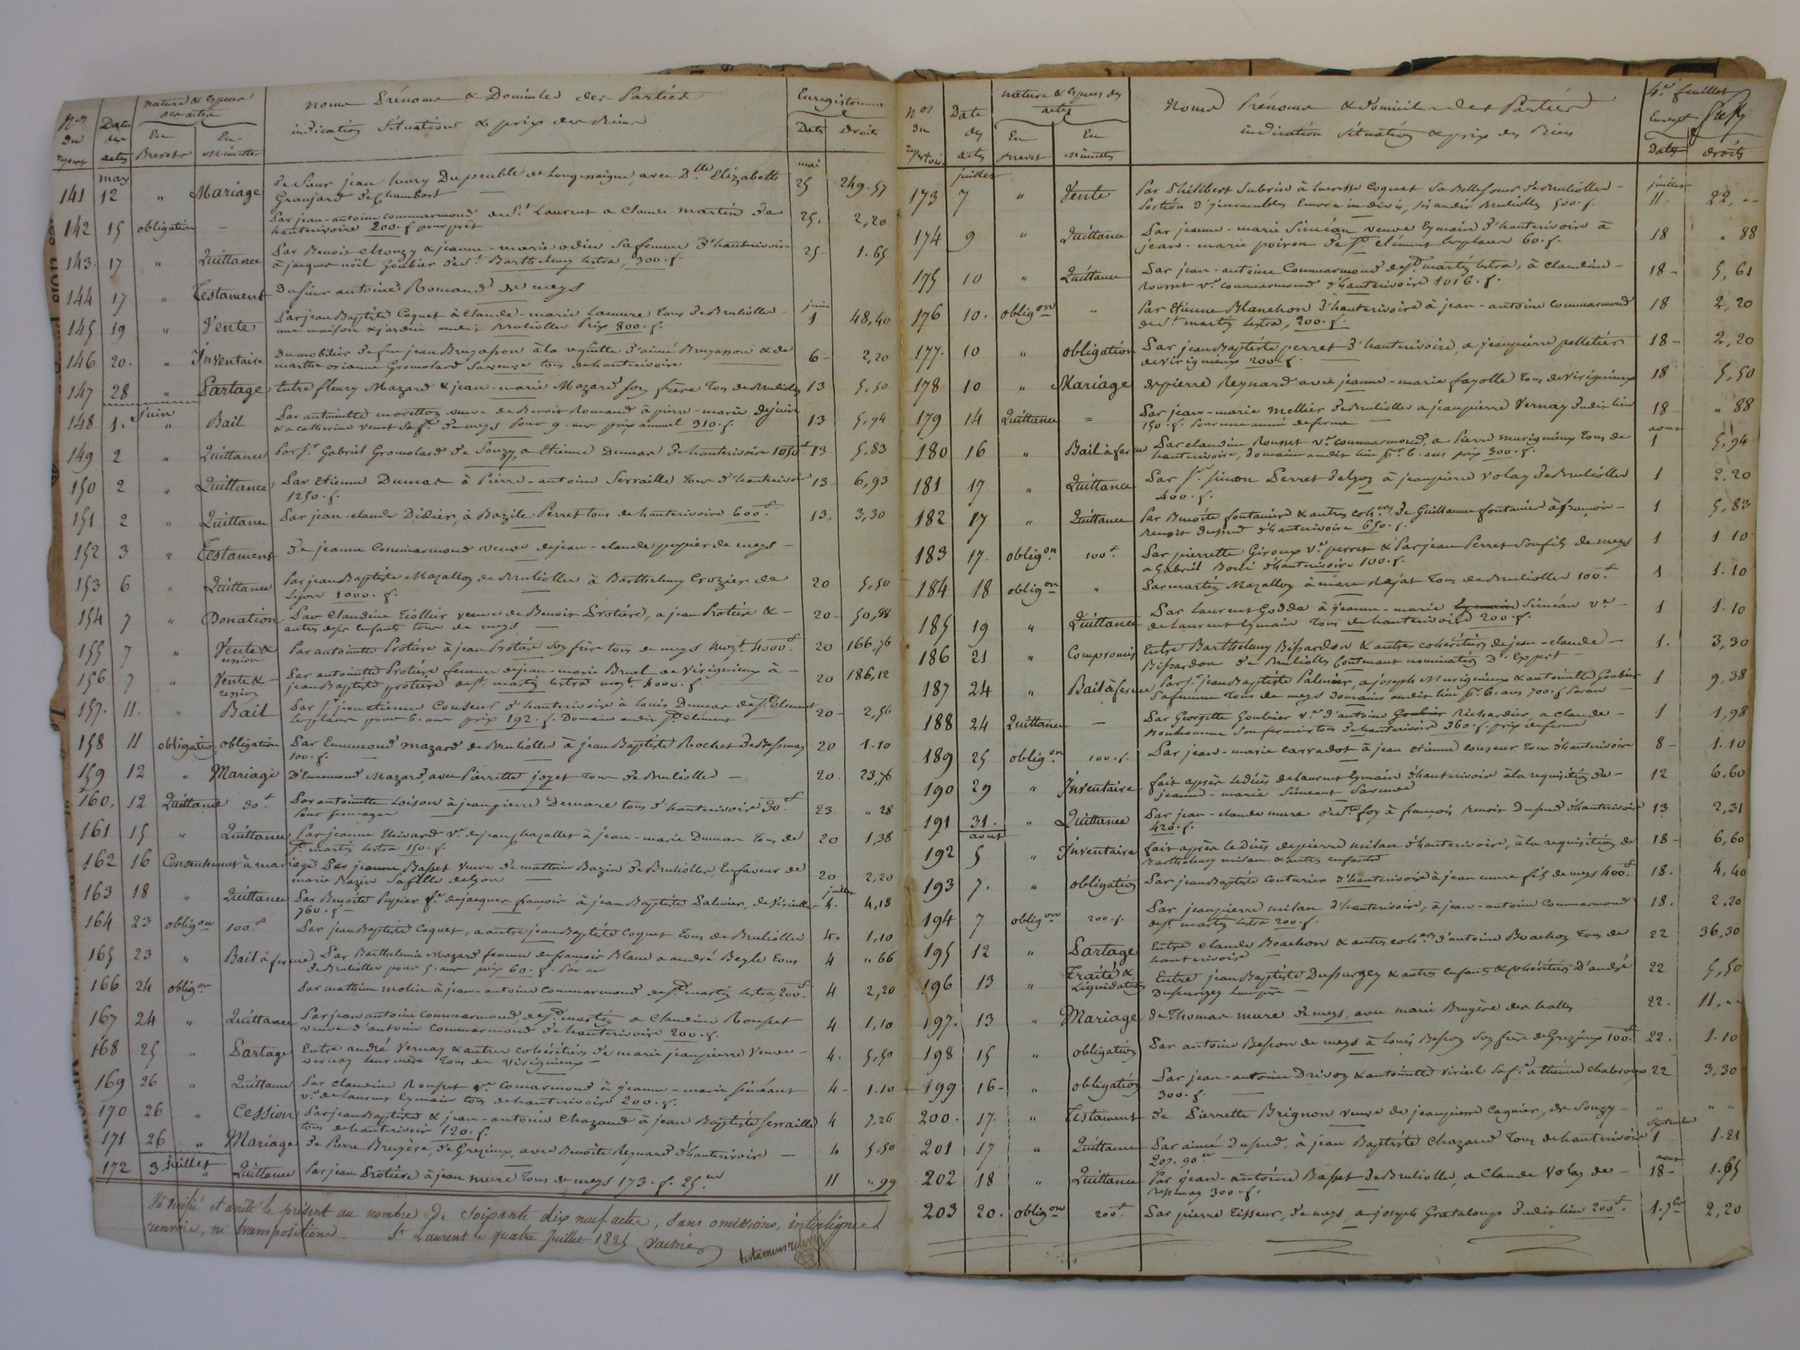 Nos du
Date des actes
nature & espece des actes
En Brevet
En Minutte
noms Prénoms & Domiciles des Parties
indication Situation & prix des Biens
Enregistrement
Dates droits
may mai
141 12 " Mariage de Sieur jean henry Dupeuble de Longessaigne, avec Dlle Elizabeth 25 249.57
de Chambost
142 15 obligation — Par jean-antoine commarmond de St Laurent a Claude martin de 25. 2,20
hauterivoire 200.f pour prêt
143. 17 " Quittance Par Benoit & jeanne-marie sa femme d'hauterivoire 25 1.65
à jacques noël Goubier de St Barthelemy Lestra, 300.f
144 17 " Testament Du sieur antoine Romand de meys
juin
145 19 " Vente Par jean Baptiste Coquet à Claude-marie Lamure tous de Brullioles 1 48,40
une maison & jardin audit Brullioles Prix 800.f.
146 20. " Inventaire Du mobilier de feu jean Bruyasson à la requête d'aimé Bruyasson & de 6 - 2,20
marthe Gromolard sa veuve tous de hauterivoire
147 28 " Partage Entre fleury Mazard & jean-marie Mazard son frère tous de Brullioles 13 5,50
juin
148 1. " Bail Par antoinette moretton veuve de Benoit Romand à pierre-marie Dejoin 13 5,94
& a catherine venet sa fe de meys Pour 9 ans prix annuel 310.f.
149 2 " Quittance Par Sr Gabriel Gromolard de Souzy, a Etienne Dumas de hauterivoire 1050f 13 5.83
150 2 " Quittance Par Etienne Dumas à Pierre-antoine Serraille tous d'hauterivoire 13 6,93
1250.f.
151 2 " Quittance Par jean-claude Didier, à Bazile Perret tous de hauterivoire 600f 13. 3,30
152 3 " Testament de jeanne Commarmond veuve de jean-claude pupier de meys —
153 6 " Quittance Par jean Baptiste Mazallon de Brullioles à Barthelemy Crozier de 20 5,50
Lyon 1000.f.
154 7 " Donation Par Claudine Tiollier veuve de Benoit Protière, a jean Protière & 20 - 50,88
autres ses enfants tous de meys
155 7 " Vente & cession Par antoinette Protière à jean Protière son frère tous de meys moyt 4000f 20 166,76
156 7 " Vente & cession Par antoinette Protière, femme de jean-marie Bruel de Virigneux à 20 186,12
jean Baptiste protière de St martin Lestra moyt 4000.f
157. 11. " Bail Par Sr jean etienne Couseur d'hauterivoire à Louis Dumas de St Clément 20 - 2,56
les places pour 6. ans prix 192.f. Domaine audit St Clément
158 11 obligation obligation Par Ennemond mazard de Brullioles à jean Baptiste Rochet de Bessenay 20 1.10
100.f.
159 12 " Mariage D'Ennemond Mazard, avec Pierrette jozet tous de Brullioles — 20. 23,76
160. 12 Quittance 30f Par antoinette Loison à jean pierre Demare tous d'hauterivoire 30.f 23. " 28
Pour fermages
161 15 " Quittance Par jeanne Thivard Ve de jean chazallet à jean-marie Dumas tous de 20 1,38
St martin Lestra 150.f.
162 16 Consentement à mariage Par jeanne Basset Veuve de mathieu Bazin de Brullioles Enfaveur de 20 2,20
marie Bazin sa fille de Lyon
juillet
163 18 " Quittance Par Benoîte Pupier fe de jacques françois à jean Baptiste Palmier, de Viricelles 4. 4,18
760.f
164 23 obligon 100f Par jean Baptiste Coquet, a autre jean Baptiste Coquet tous de Brullioles 4. 1,10
165 23 " Bail à ferme Par Barthelemie Mazard femme de françois Blanc a andré Begle tous 4 " 66
de Brullioles pour 5. ans prix 60.f. Par an
166 24 obligon Par mathieu molin à jean-antoine Commarmond de St martin Lestra 200f 4 2,20
167 24 " Quittance Par jean antoine Commarmond de St martin a Claudine Rousset 4 1,10
veuve d'antoine Commarmond de hauterivoire 200.f.
168 25 " Partage Entre andré Vernay & autres cohéritiers de marie jean pierre Veuve 4. 5,50
vernay leur mère tous de Virigneux
169 26 " Quittance Par Claudine Rousset Ve Comarmond à jeanne-marie Siméant 4 - 1.10
Ve de Laurent Eymain tous de hauterivoire 200.f.
170 26 " Cession Par jean Baptiste & jean-antoine Chazaud à jean Baptiste ferraille 4 7.26
tous de hauterivoire 120.f.
171 26 " Mariage de Pierre Bruyère, de Grezieux, avec Benoîte Reynard d'hauterivoire — 4 5.50
172 3 juillet " Quittance Par jean Protière à jean mure tous de meys 173.f. 25.c 11 " 99
Vérifié et arrêté le présent au nombre de Soixante dix neuf actes, sans omissions, interlignes
renvois, ni transpositions. St Laurent le quatre juillet 1825
Nos du repertoire
Date des actes
nature & especes des actes
En Brevet
En minutes
Noms Prénoms & domiciles des Parties
indication Situation & prix des Biens
4e feuillet
Dates droits
juillet juillet
173 7 " Vente Par Philibert Subrin à Coquet sa Belle sœur de Brullioles 11. 22,--
Portion d'immeubles Encore indivis, situés dit Brullioles 500.f.
174 9 " Quittance Par jeanne-marie Siméan veuve Eymain d'hauterivoire à 18 " 88
jean-marie poiron de St Clément les places 60.f.
175 10 " Quittance Par jean-antoine Commarmond de St martin Lestra, à Claudine 18 - 5,61
Rousset Ve commarmond d'hauterivoire 1016.f.
176 10. obligon " Par Etienne Blanchon d'hauterivoire à jean-antoine commarmond 18 2,20
de St martin Lestra, 200.f
177. 10 " obligation Par jean Baptiste perret d'hauterivoire, a jean pierre pelletier 18 - 2,20
de virigneux 200.f.
178 10 " Mariage de pierre Reynard avec jeanne-marie fayolle tous de virigneux 18 5,50
179 14 Quittance = Par jean-marie mellier de Brullioles a jean pierre Vernay dudit lieu 18 - " 88
150.f. Pour une année de ferme
aout
180 16 " Bail à ferme Par claudine Rousset Ve commarmond, a Pierre murigneux tous de 1 5,94
hauterivoire, domaine audit lieu Pr 6. ans prix 300.f.
181 17 " Quittance Par Sr Simeon Perret de Lyon à jean pierre Volay de Brullioles 1 2,20
400.f.
182 17 " Quittance Par Benoite fontanier & autres cohers de Guillaume fontanier à françois 1 5,83
renoit Dufeud d'hauterivoire 650.f.
183 17. obligon 100f Par pierrette Giroux Ve perret & Par jean Perret son fils de meys 1 1 10
a Gabriel Boni d'hauterivoire 100.f.
184 18 obligon " Par martin Mazallon à Rajat tous de Brullioles 100f 1 1.10
185 19 " Quittance Par Laurent Godde à jeanne-marie Siméan ve 1 1.10
de Laurent Eymain tous de hauterivoire 200.f.
186 21 " Compromis Entre Barthelemy Bissardon & autres cohéritiers de jean-claude 1. 3,30
Bissardon de Brullioles Contenant nomination d'Expert —
187 24 " Bail à ferme Par Sr jean Baptiste Palmier, a joseph Murigneux & antoinette Goubier 1 9,38
sa femme tous de meys Domaine audit lieu Pr 6. ans 700.f. Par an
188 24 Quittance — Par Georgette Goubier Ve d'antoine Richardier, a claude 1 1,98
son fermier tous de hauterivoire 360.f. prix de ferme
189 25 obligon 100.f. Par jean-marie Carradot à jean etienne couzeur tous d'hauterivoire 8 - 1.10
190 29 " Inventaire fait après le décès de Laurent Eymain d'hauterivoire à la requisition de 12 6.60
jeanne-marie Siméant sa veuve
191 31. " Quittance Par jean-claude mure de Ste foy à françois renoit dufeud d'hauterivoire 13 2,31
420.f.
aout
192 5 " Inventaire fait après le décès de pierre milan d'hauterivoire, à la requisition de 18 - 6,60
Barthelemy milan & autres enfants
193 7. " obligation Par jean Baptiste Couturier d'hauterivoire à jean mure fils de meys 400f 18. 4,40
194 7 obligon 200.f. Par jean pierre milan d'hauterivoire, à jean-antoine Commarmond 18. 2,20
de St martin Lestra 200.f.
195 12 " Partage Entre Claude Boachon & autres cohers d'antoine Boachon tous de 22 36,30
hauterivoire
196 13 " Traité & Liquidation Entre jean Baptiste Dussurgey & autres enfants & cohéritiers d'andré 22 5,50
Dussurgey leur père —
197. 13 " Mariage de Thomas mure de meys, avec marie Bruyère des halles 22. 11,--
198 15 " obligation Par antoine Besson de meys à Louis Besson son frère de Grezieux 100f 22. 1.10
199 16- " obligation Par jean-antoine Drivon & antoinette Viricel sa fe a thieme chabrouy 22 3,30
300.f.
200. 17. " Testament de Pierrette Brignon veuve de jean pierre Cagnier, de Souzy — " " "
septembre
201 17 " Quittance Par aimé Dufeud, à jean Baptiste Chazaud tous de hauterivoire 1 1.21
207. 90c
aout
202 18 " Quittance Par jean-antoine Basset de Brullioles, a Claude Volay de 18 - 1.65
Bessenay 300.f.
203 20. obligon 200f Par pierre Tisseur, de meys, a joseph Grataloup dudit lieu 200f. 1.7bre 2,20